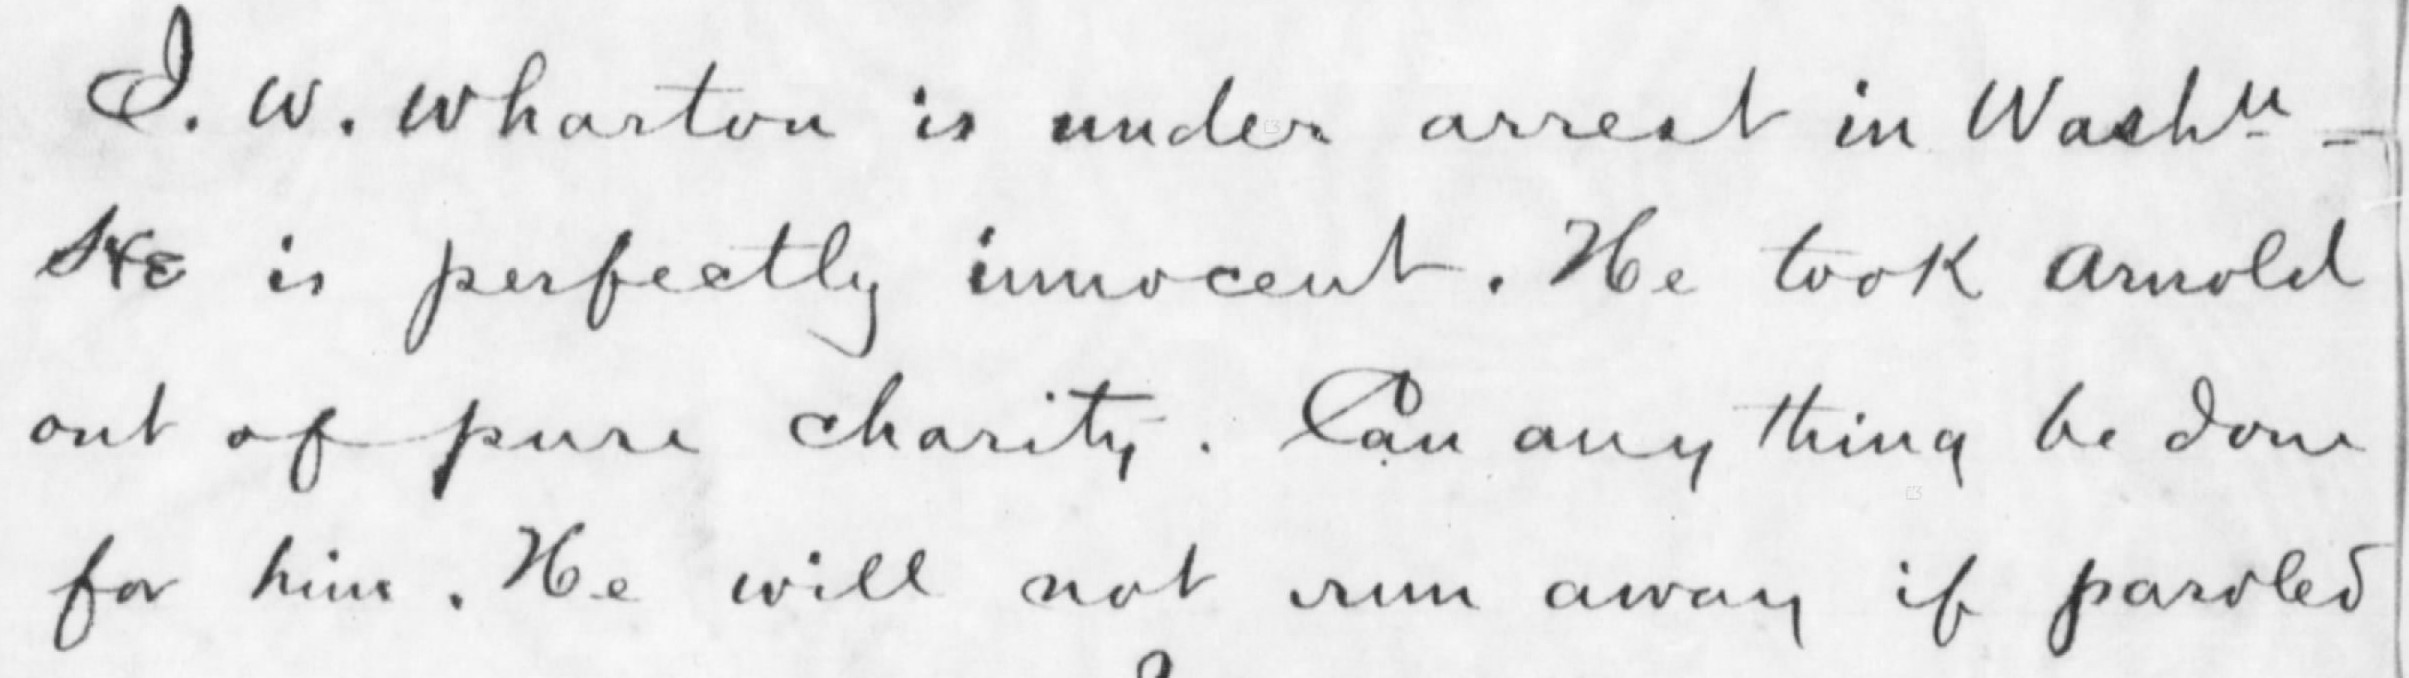 J. W. Wharton is under arrest in Washn —
He is perfectly innocent. He took Arnold
out of pure charity. Can any thing be done
for him. He will not run away if paroled